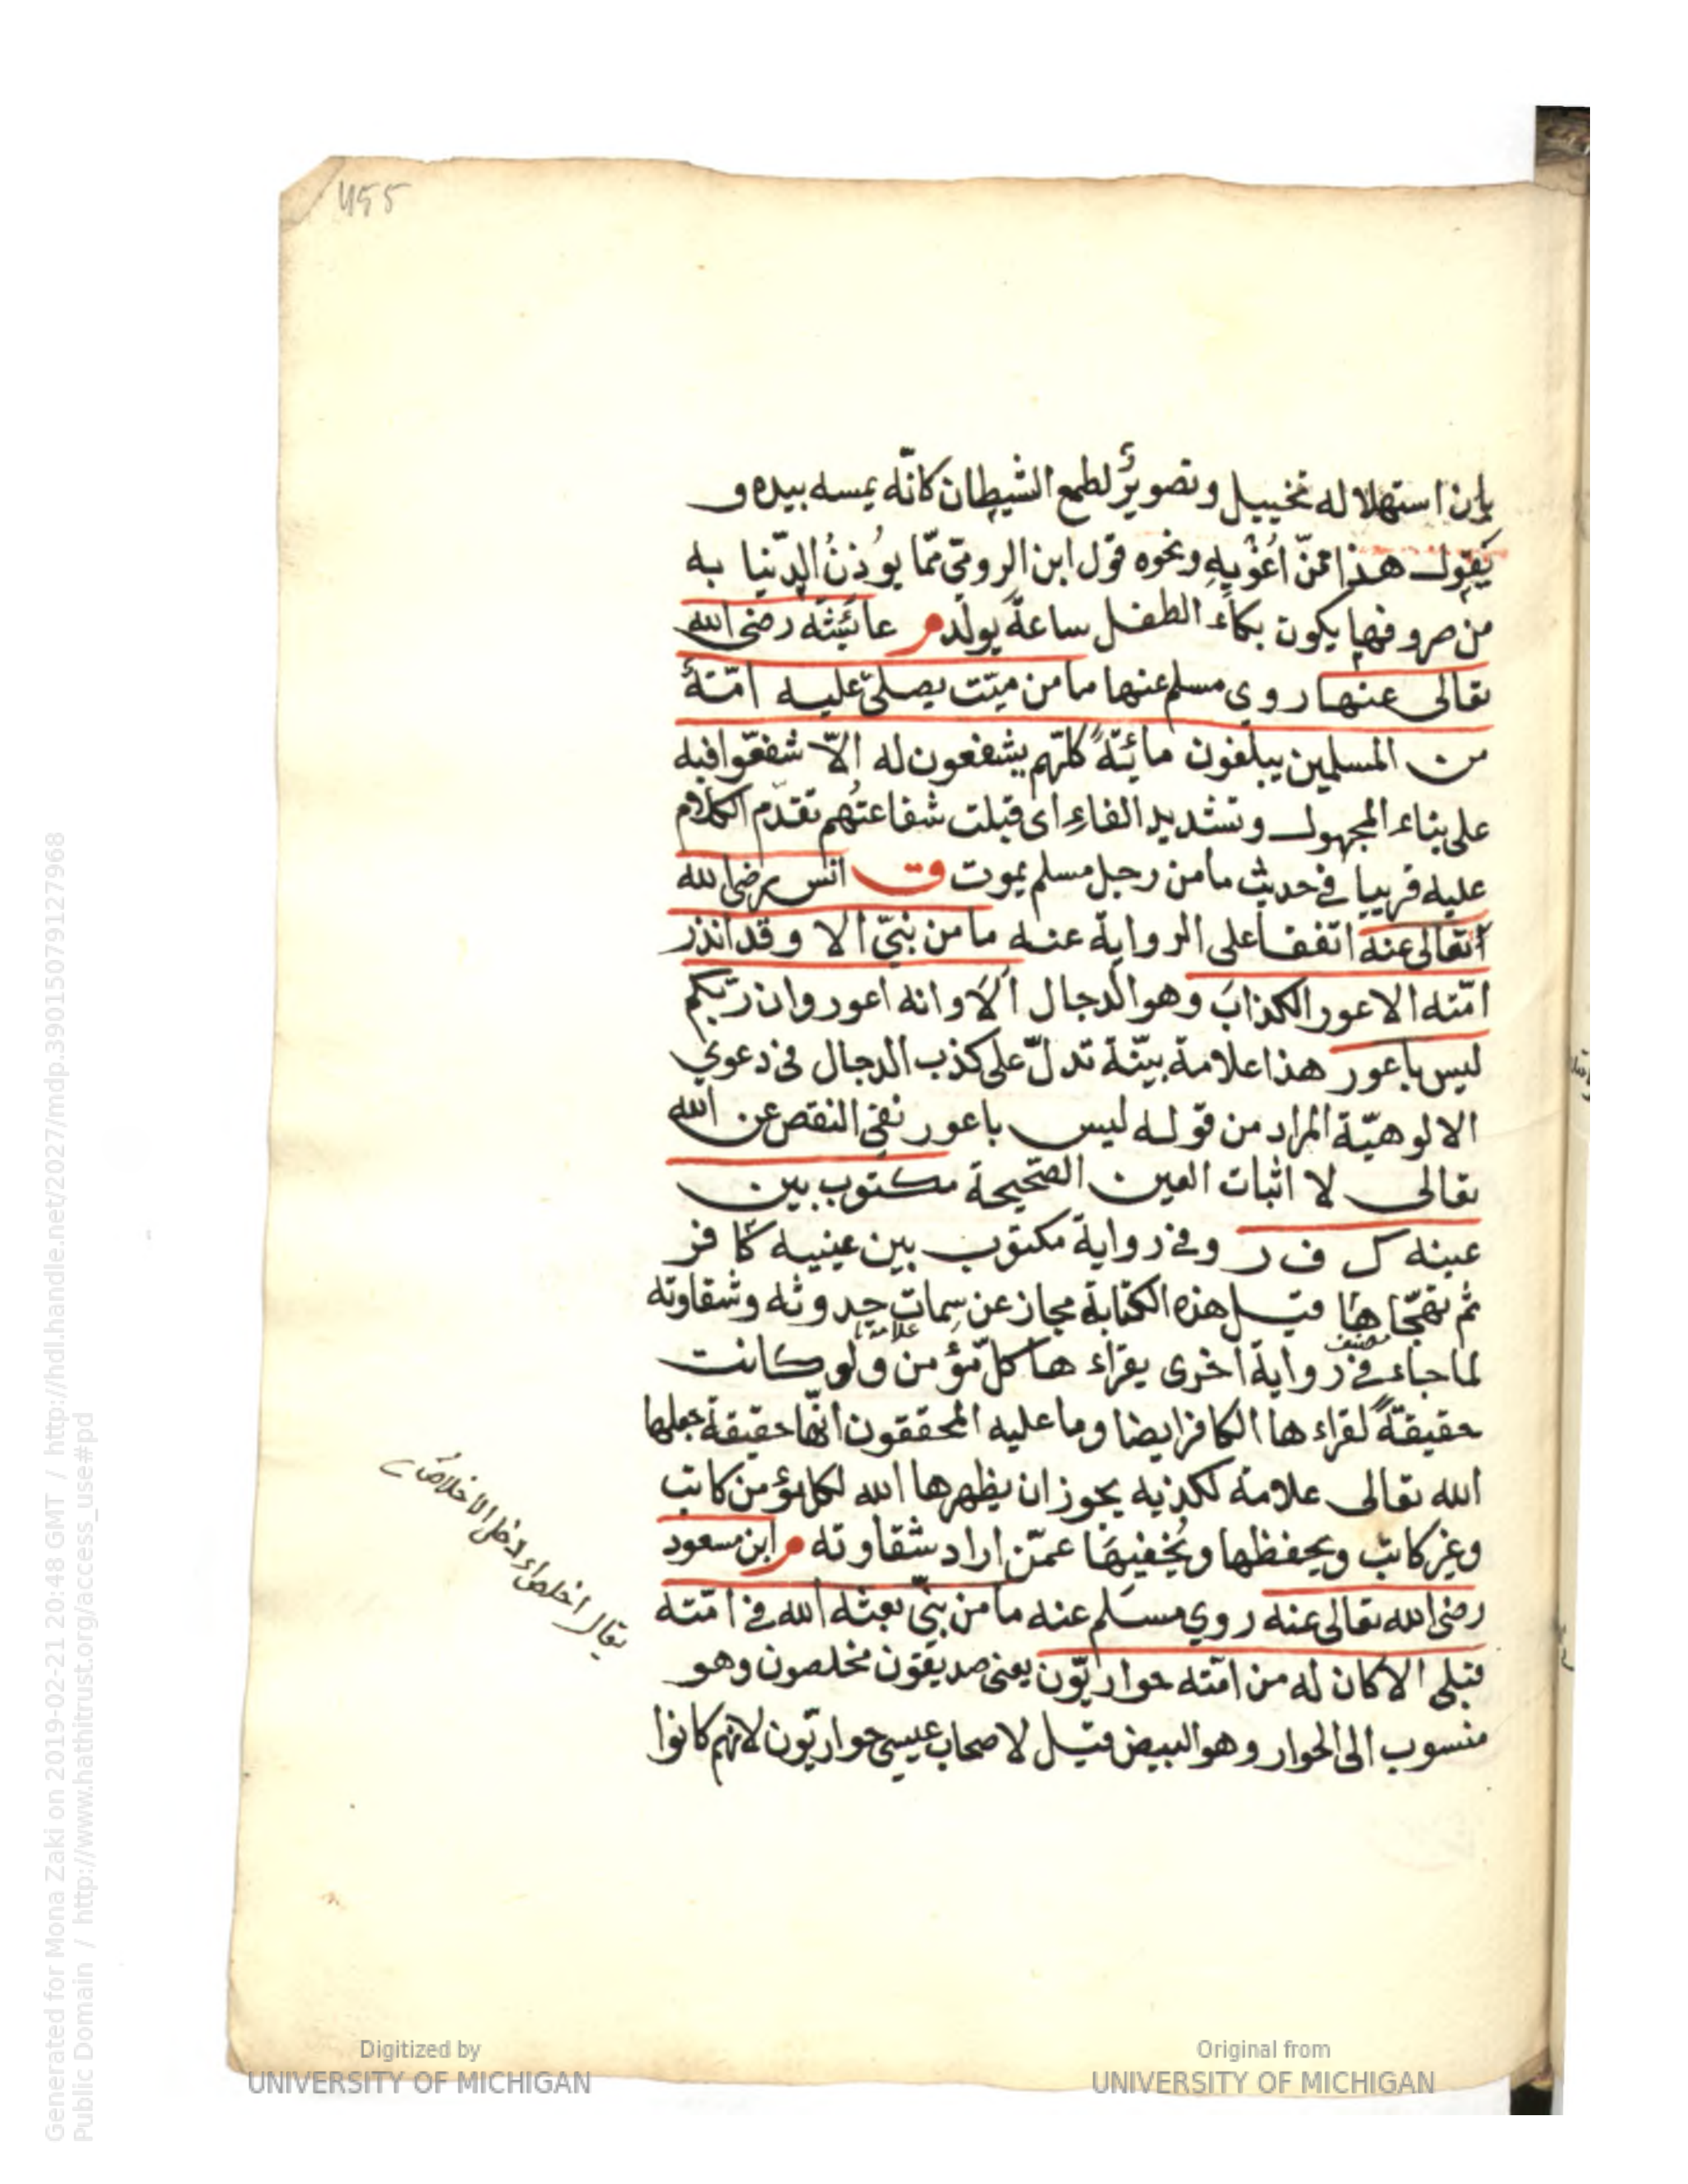 455
بان استهلاله تخييل وتصويرٌ لطمع الشيطان كانّه يمسه بيده و
يَقول هذا ممّن اُغْويهِ ونحوه قول ابن الرومي ممّا يوُذنُ الدّنيا به
من صروفها يكون بكاء الطفل ساعةً يولد م عائشة رضي الله
تعالى عنها روي مسلم عنها ما من ميّت يصلّي عليه امّةٌ
من المسلمين يبلغون مائةً كلّهم يشفعون له الاّ شفعّوا فيه
على بناء المجهول وتشديد الفاءِ اى قبلت شفاعتُهم تقدّم الكلام
عليه قريبا في حديث ما من رجل مسلم يموت ق انس رضي الله
تعالى عنه اتفقا على الرواية عنه ما من نبيّ الا وقد انذر
امّته الاعور الكذابَ وهو الدجال اَلاَ وانه اعور وان ربّكم
ليس باعور هذا علامة بيّنة تدلّ على كذب الدجال في دعوي
الالوهيّة المراد من قوله ليس باعور نفي النقص عن الله
تعالى لا اثبات العين الصّحيحة مكتوب بين
عينه ك ف ر وفي رواية مكتوب بين عينيه كافر
ثم تهجّاها قيل هذه الكتابة مجاز عن سِمات حدوثه وشقاوته
علامة
لما جاء في رواية اخرى يقراء ها كلّ مؤمن ولو كانت
حقيقةً لقراء ها الكافر ايضا وما عليه المحققون انّها حقيقة جعلها
الله تعالى علامة لكذبه يجوز ان يظهرها الله لكل مؤمن كاتب
وغير كاتب ويحفظها ويُخفيهَا عمّن اراد شقاوته م ابن مسعود
رضي الله تعالى عنه روي مسلم عنه ما من نبيّ بعثه الله في امّته
قبلي الا كان له من امّته حواريّون يعني صديقون مخلصون وهو
منسوب الى الحوار وهو البيض قيل لاصحاب عيسى حواريّون لانهم كانوا
يقال اخلصاء دخل الاخلاص
Digitized by
UNIVERSITY OF MICHIGAN
Original from
UNIVERSITY OF MICHIGAN
Generated for Mona Zaki on 2019-02-21 20:48 GMT / http://hdl.handle.net/2027/mdp.39015079127968
Public Domain / http://www.hathitrust.org/access_use#pd